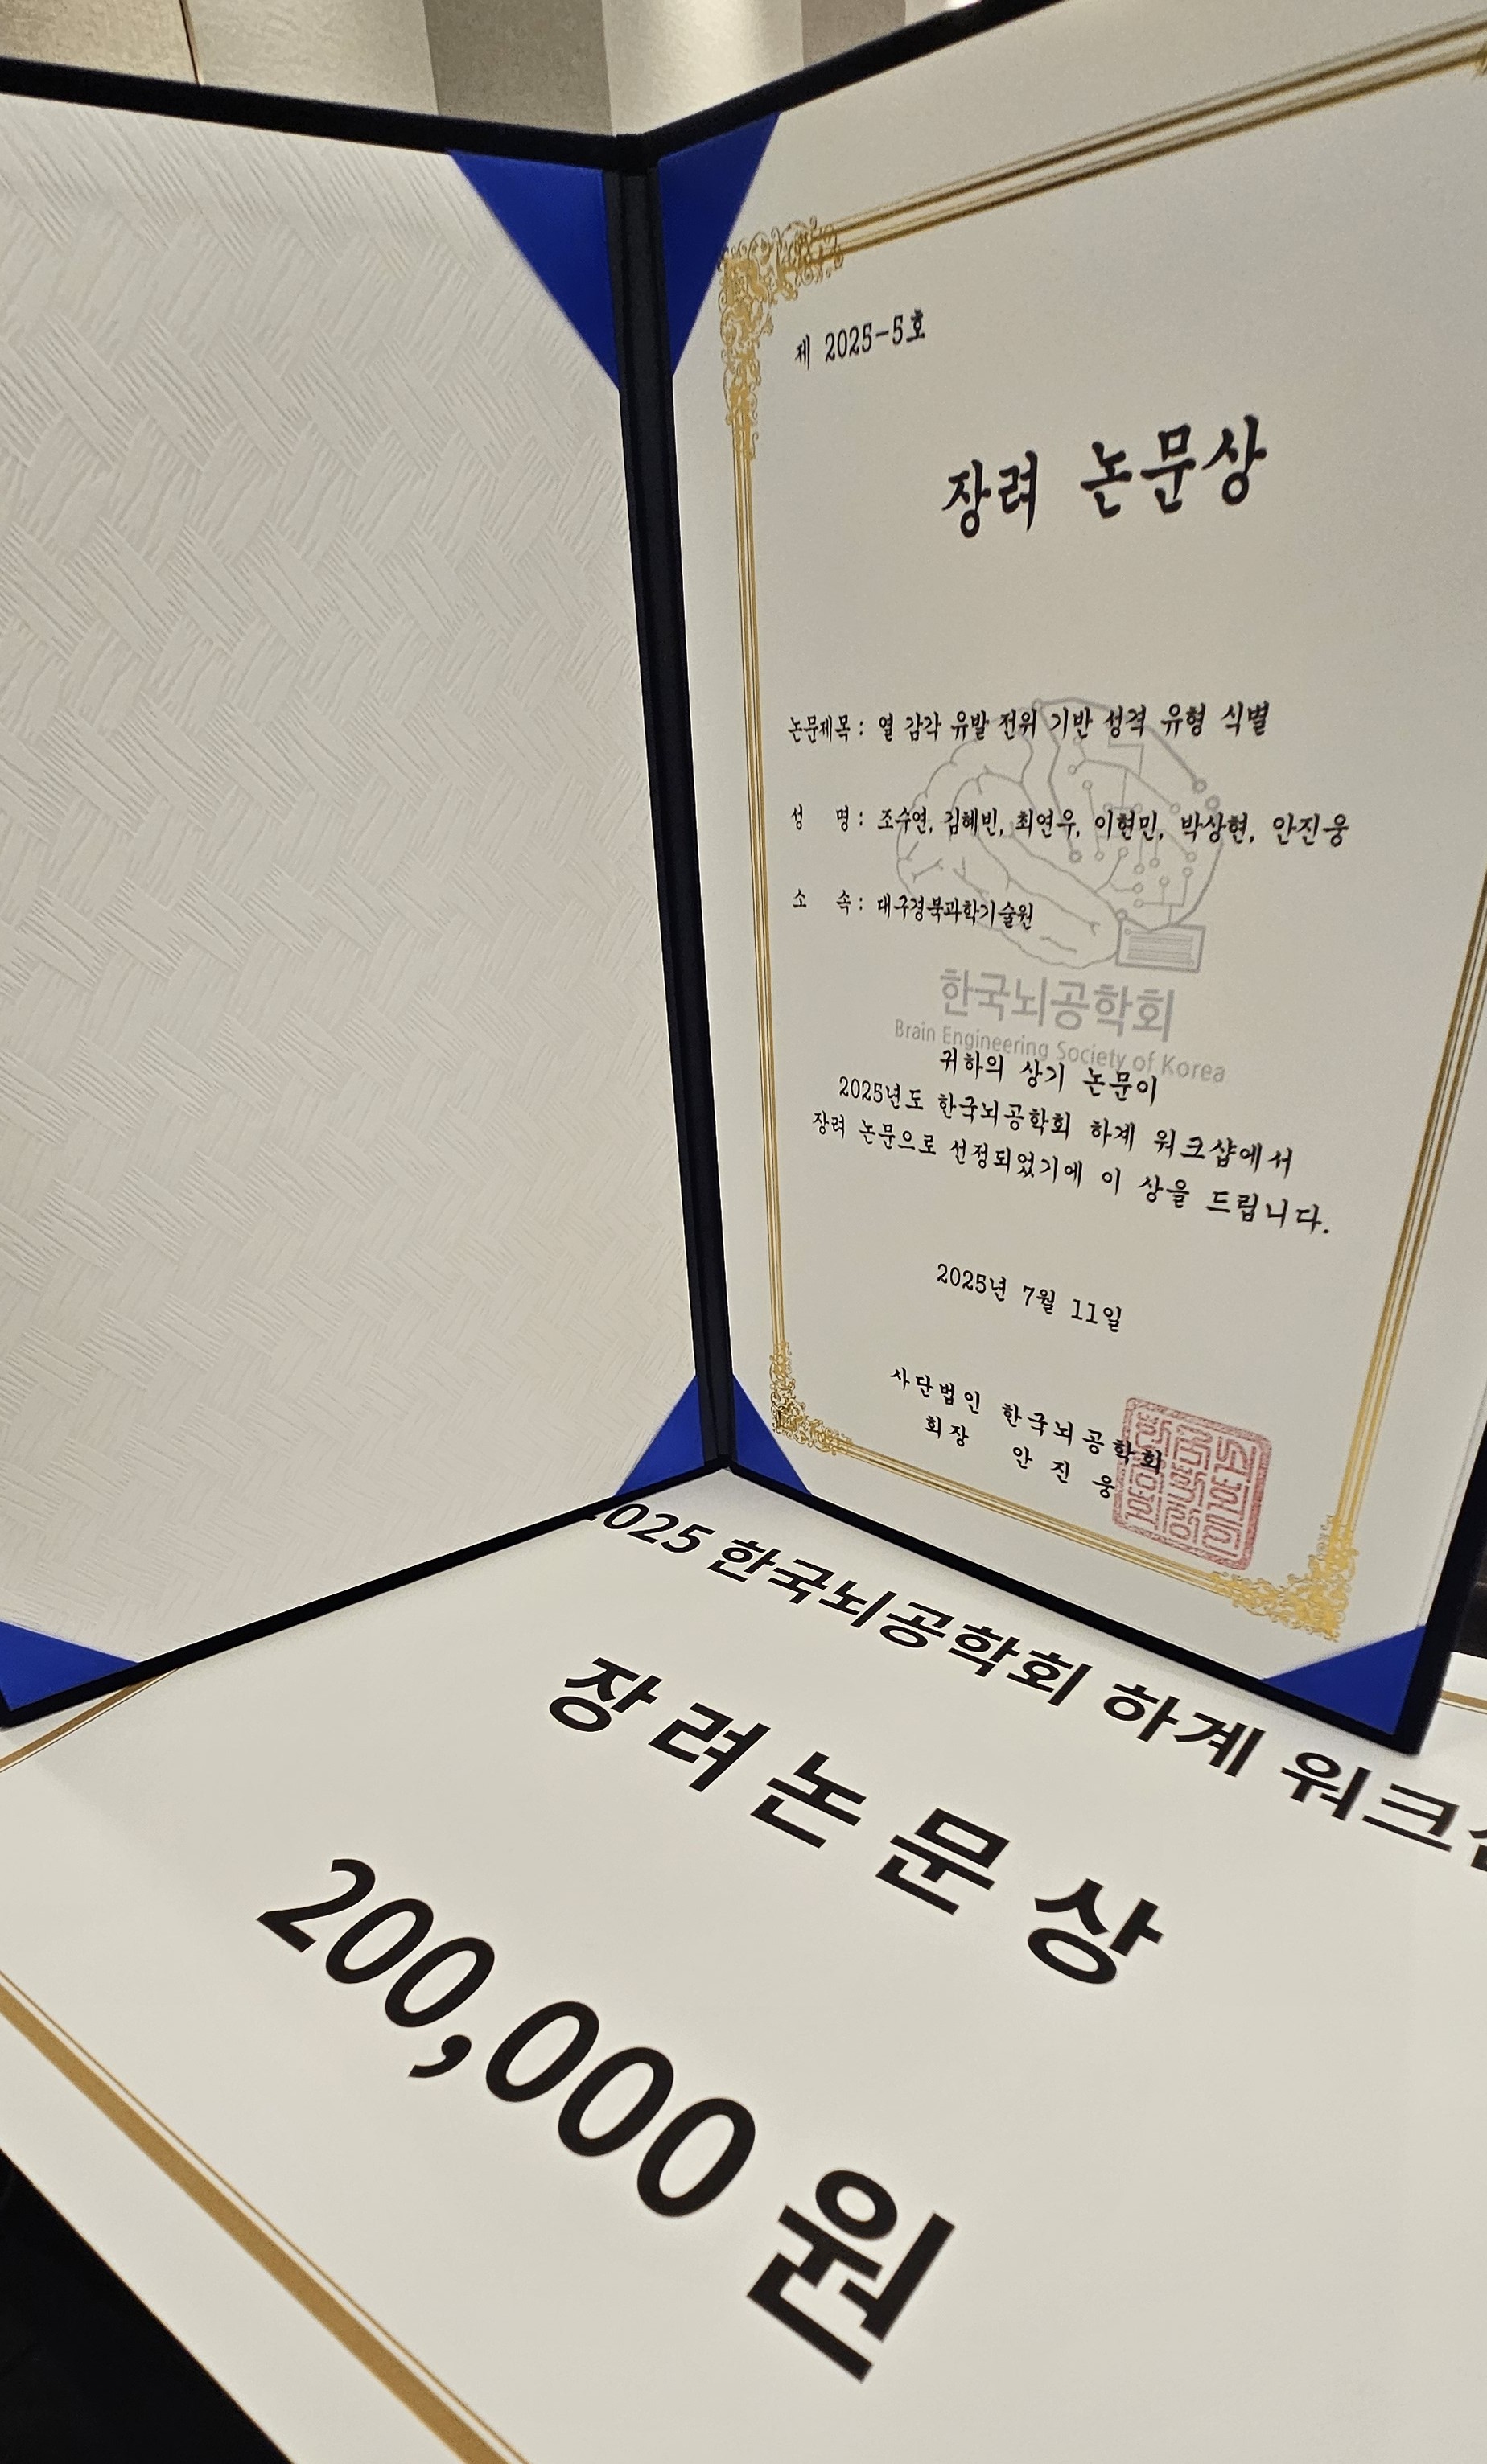 제 2025-5호
장려 논문상
논문제목 : 열 감각 유발 전위 기반 성격 유형 식별
성 명 : 조수연, 김혜빈, 최연우, 이현민, 박상현, 안진웅
소 속 : 대구경북과학기술원
한국뇌공학회
Brain Engineering Society of Korea
귀하의 상기 논문이
2025년도 한국뇌공학회 하계 워크샵에서
장려 논문으로 선정되었기에 이 상을 드립니다.
2025년 7월 11일
사단법인 한국뇌공학회
회장 안진웅
2025 한국뇌공학회 하계 워크
장려논문상
200,000원